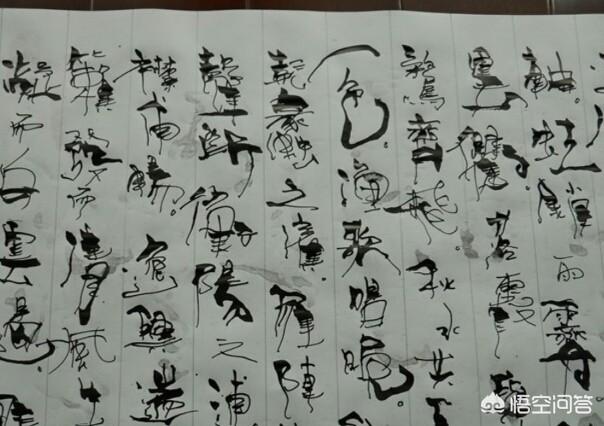 舳。虹銷雨霽
落霞與
鶩齊飛。秋水共
一色。漁歌唱晚
蠡之濱。雁陣
聲斷衡陽之浦
襟甫暢。逸興遄
籟發而清風生
凝而白雲遏。
悟空问答